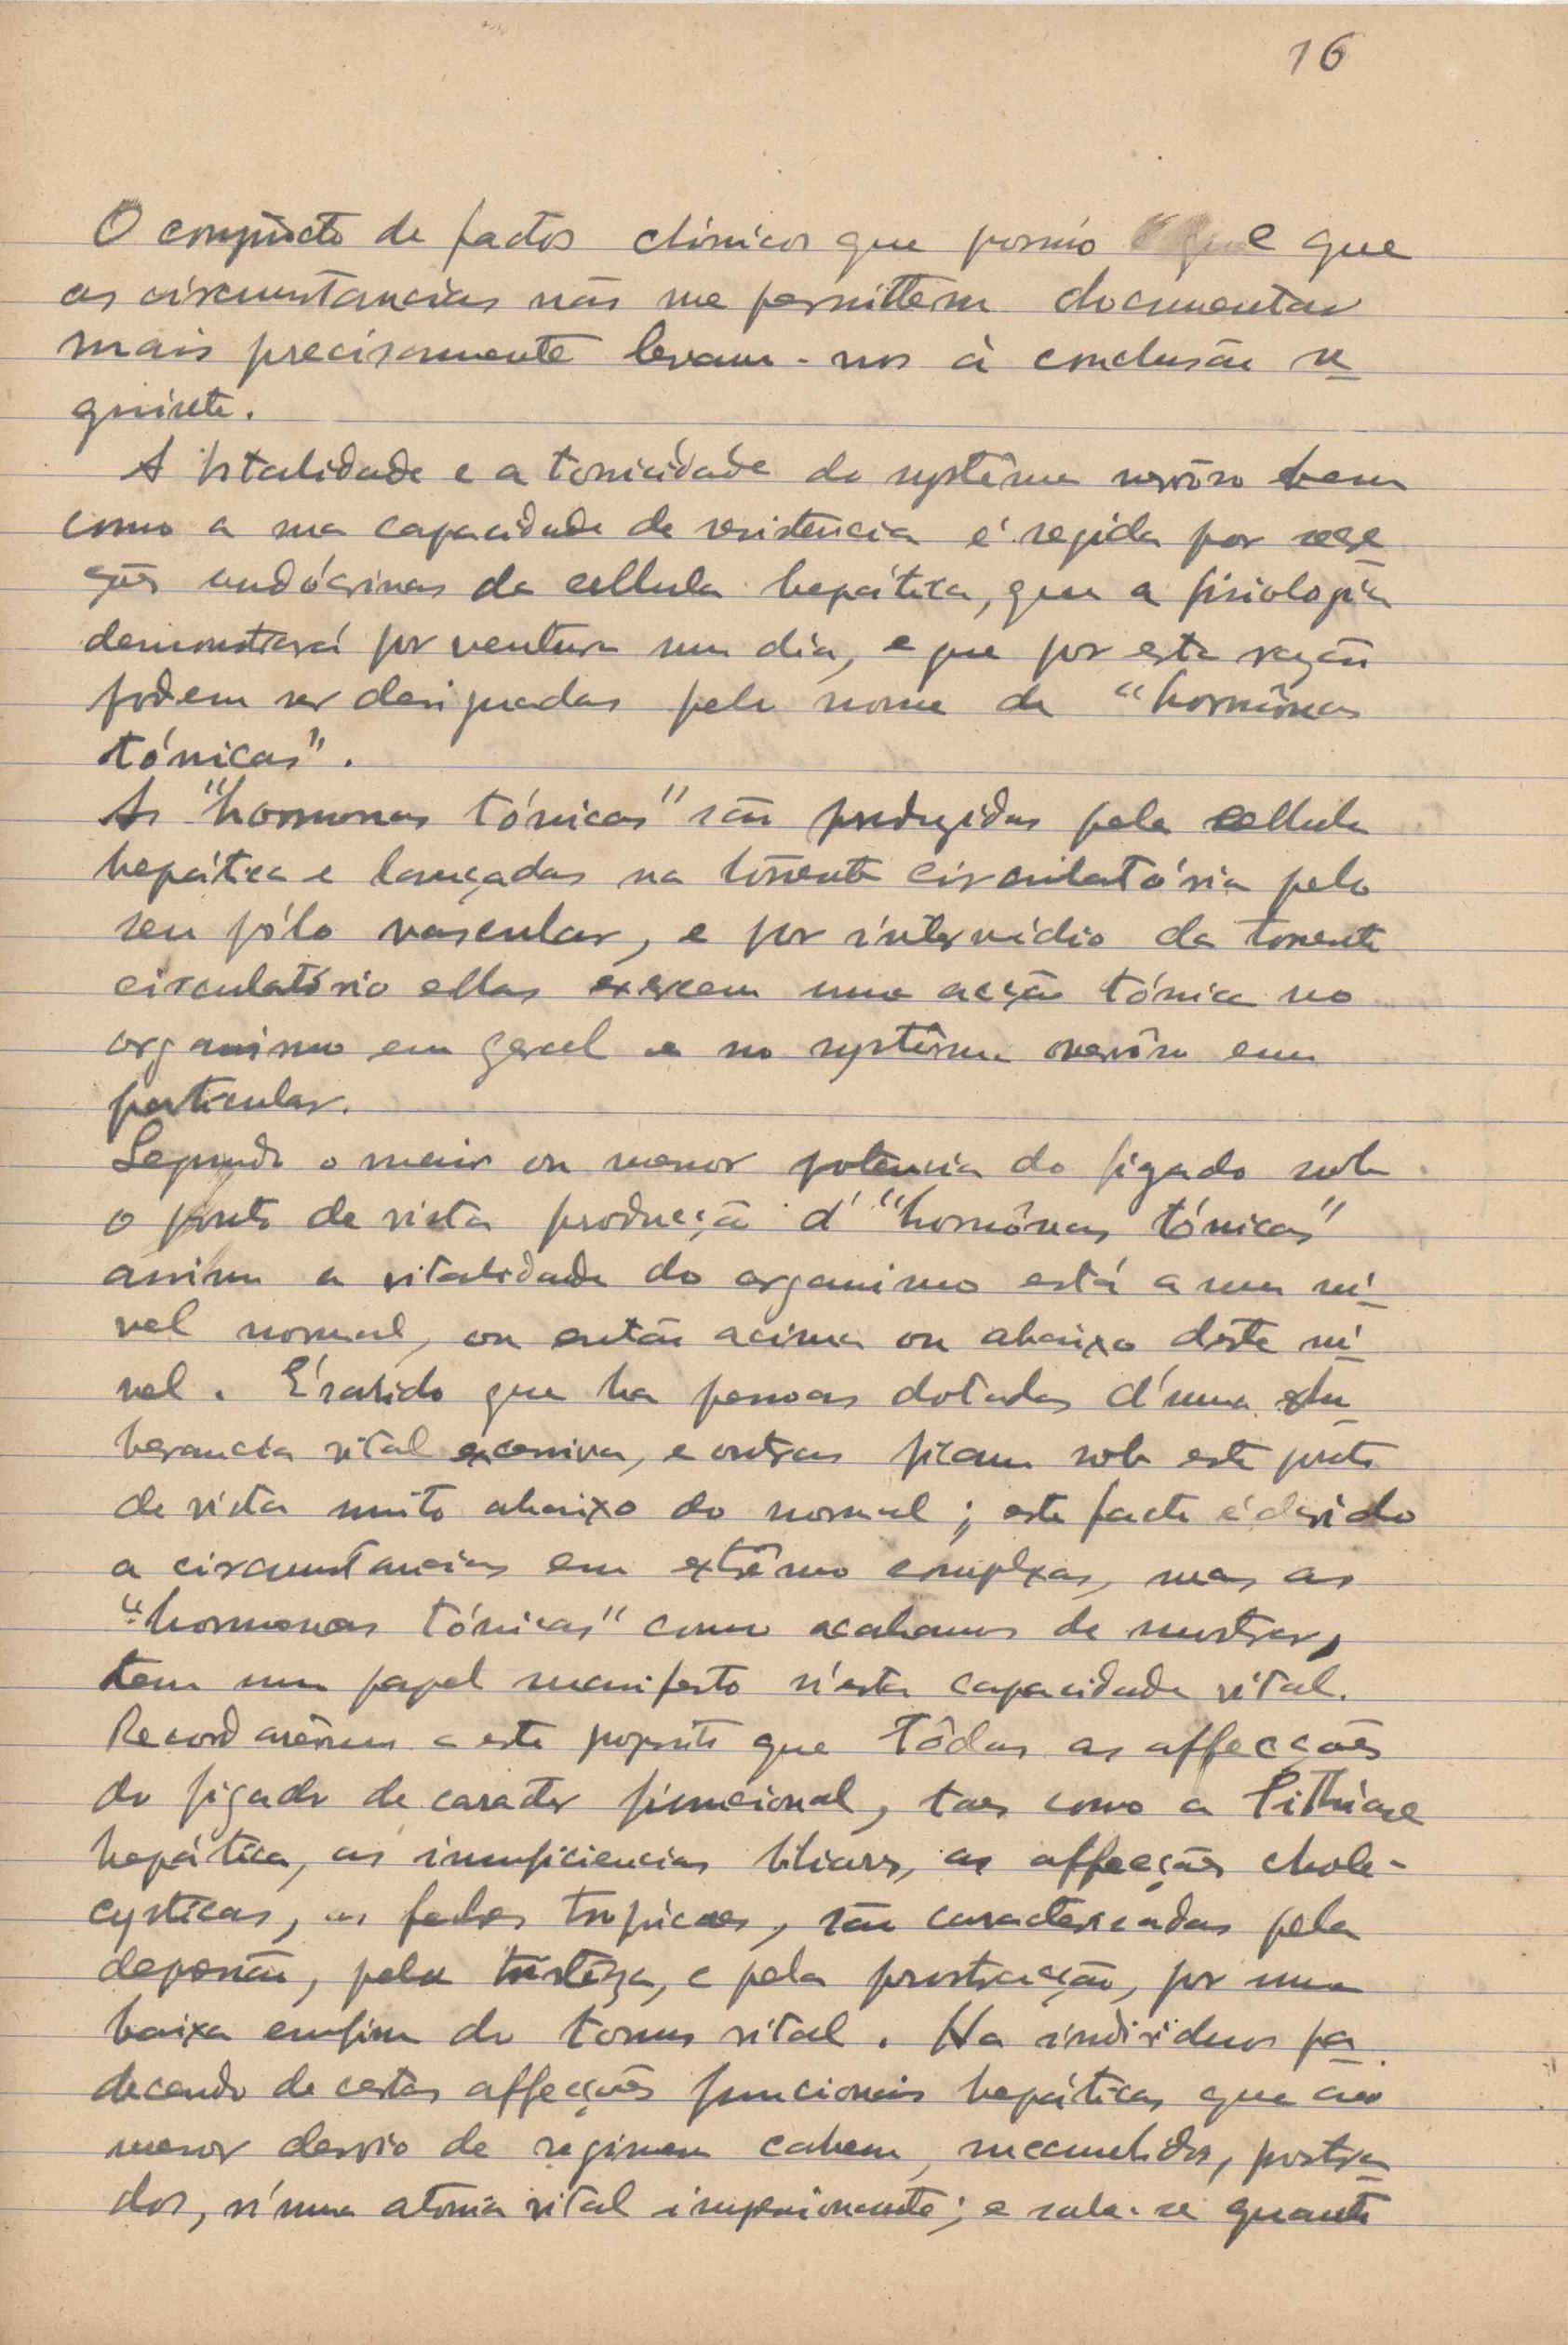 16
O conjuncto de factos clinicos que possúo e que
as circumstancias não me permittem documentar
mais precisamente levam-nos à conclusão se
guinte.
A vitalidade e a tonicidade do systêma nervôso bem
como a sua capacidade de resistencia é regida por secre
ções endócrinas da cellula hepática, que a fisiologia
demonstrará por ventura um dia, e que por esta razão
podem ser designadas pelo nome de "hormônas
tónicas".
As "hormonas tónicas" são produzidas pela cellula
hepática e lançadas na torrente circulatória pelo
seu pólo vascular, e por intermédio da torrente
circulatório ellas exercem uma acção tónica no
organismo em geral e no systêma nervôso em
particular.
Segundo o maior ou menor potencia do figado sob
o ponto de vista producção d'"hormônas tónicas"
assim a vitalidade do organismo está a um ní
vel normal, ou então acima ou abaixo deste ní
vel. É sabido que ha pessoas dotadas d'uma exhu
berancia vital excessiva, e outras ficam sob este ponto
de vista muito abaixo do normal; este facto é devido
a circumstancias em extrêmo complexas, mas as
"hormonas tónicas" como acabamos de mostrar,
tem um papel manifesto n'esta capacidade vital.
Recordarêmos a este proposito que tôdas as affecções
do figado de caracter funcional, taes como a lithiase
hepática, as insuficiencias biliares, as affecções chole-
cysticas, as febres tropicaes, são caracterisadas pela
depressão, pela tristêza, e pela prostração, por uma
baixa emfim do tonus vital. Ha individuos pa
decendo de certas affecções funcionais hepáticas que ao
menor desvio de regimen cahem, succumbidos, postra
dos, n'uma atonia vital impressionante; e sabe-se quanto